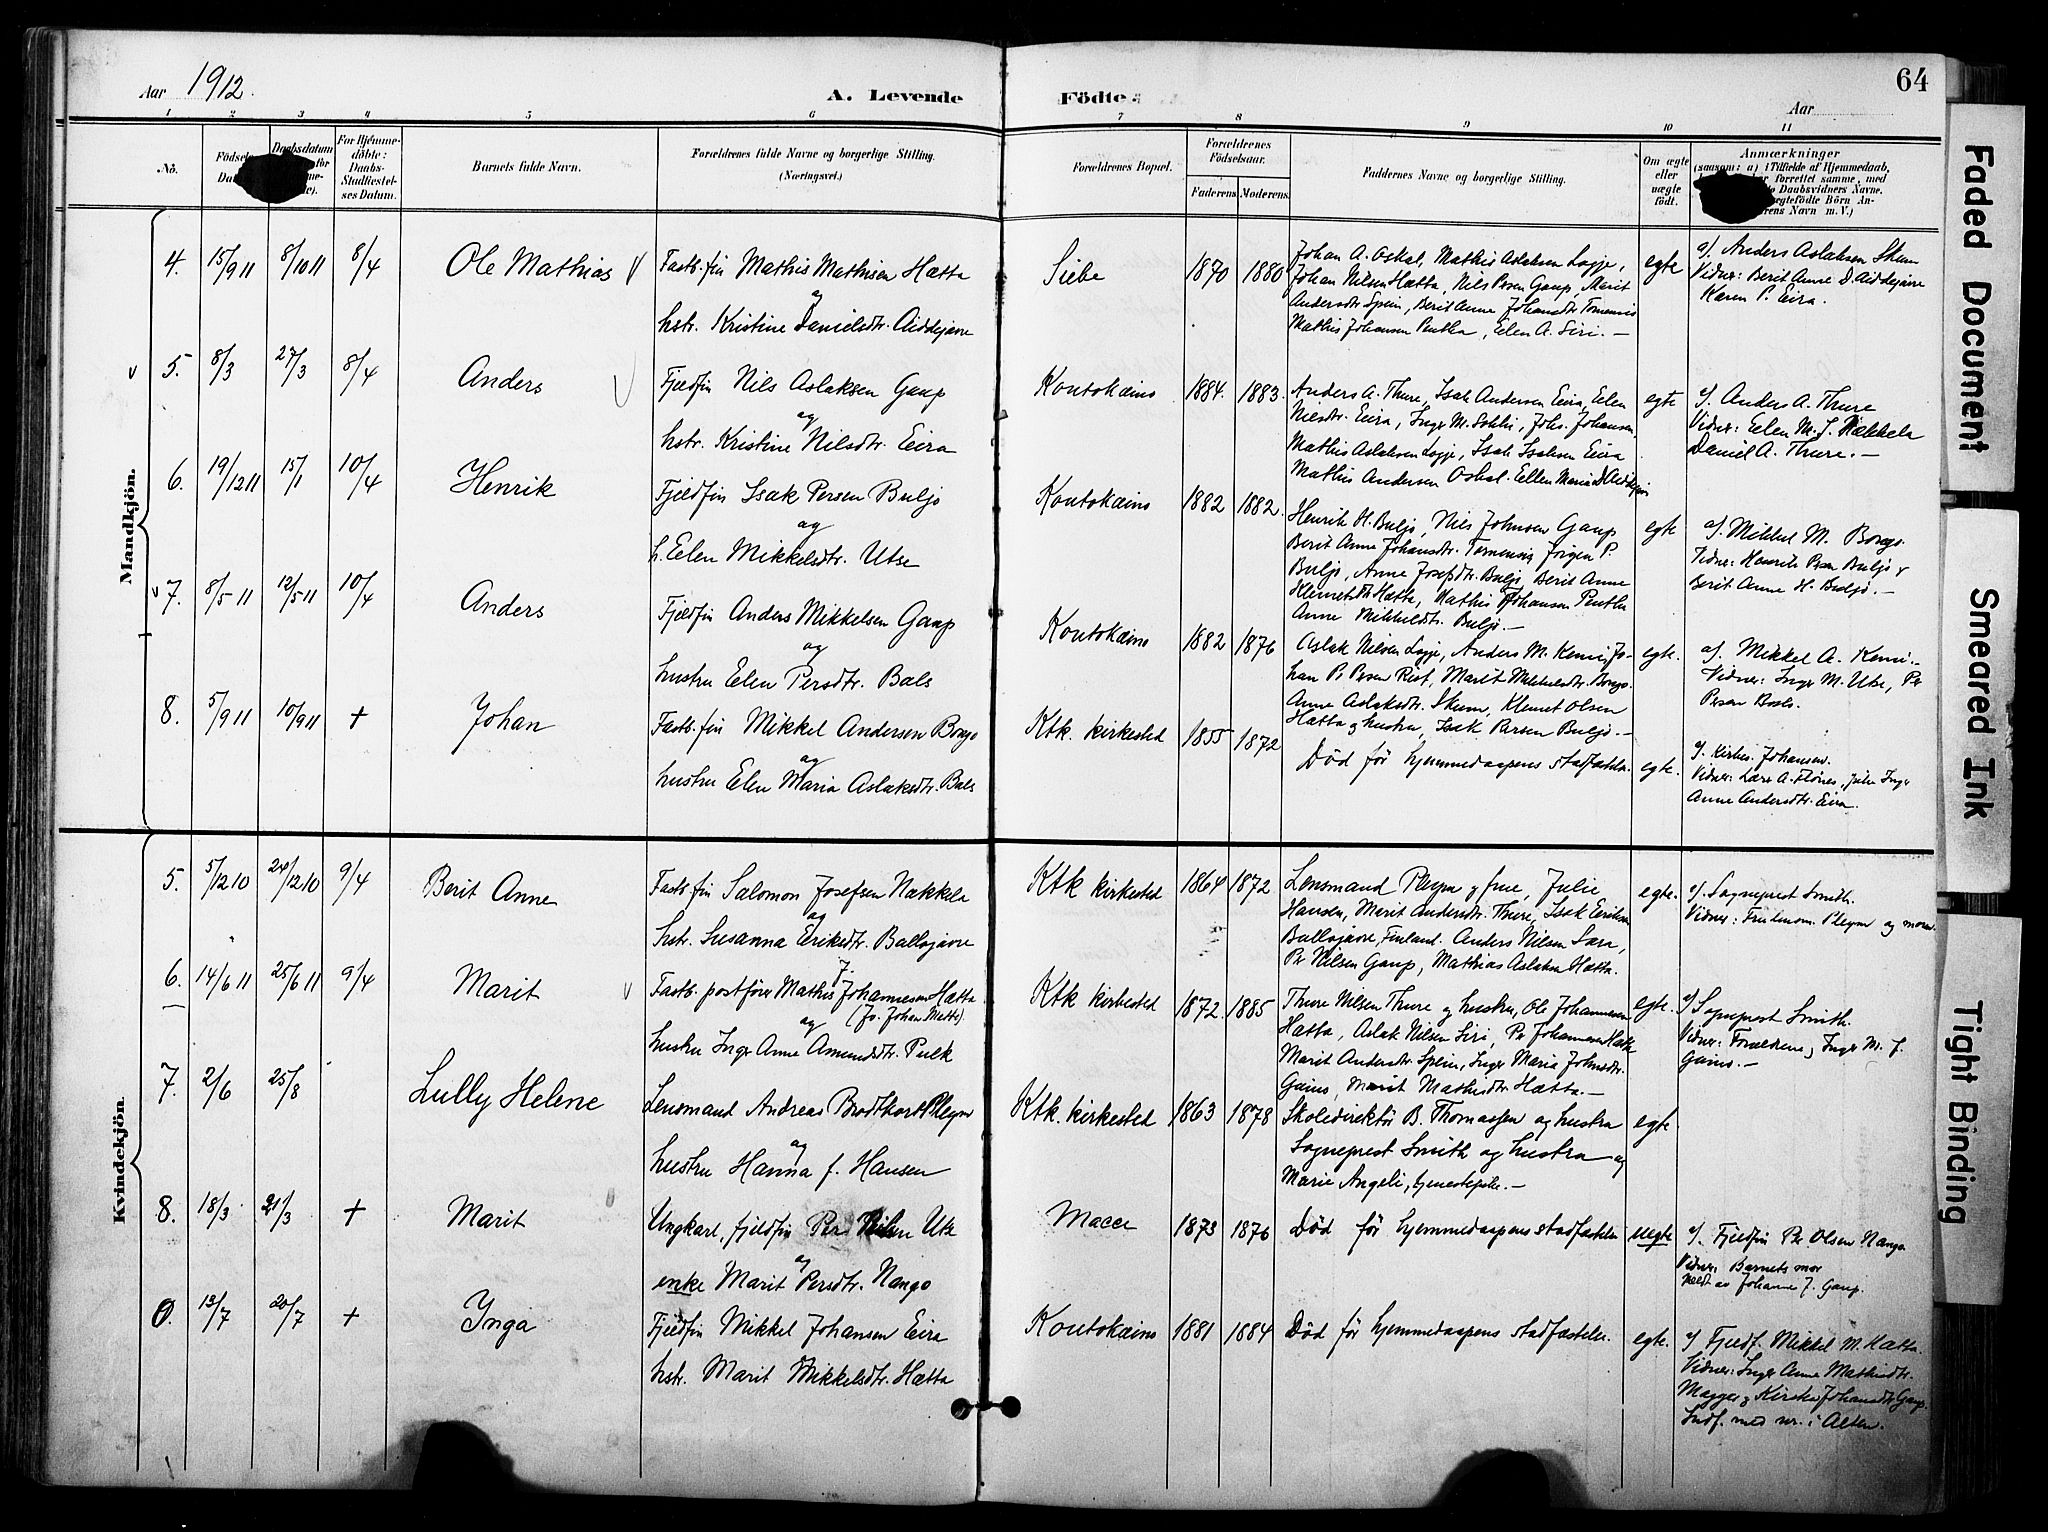 Aar 1912. A. Levende Födte. Aar 64
1 2 3 4 5 6 7 8 9 10 11
No.
Födsels
Daabsdatum
For Hjemmedöbte: Daabs-Stadfæstelses Datum.
Barnets fulde Navn.
Forældrenes fulde Navne og borgerlige Stilling.
(Næringsvei.)
Forældrenes Bopæl.
Forældrenes Födselsaar.
Faderens Moderens
Faddernes Navne og borgerlige Stilling.
Om ægte eller uægte födt.
Anmærkninger
(saasom: a) i Tilfælde af Hjemmedaab,
forrettet samme, med
Daabsvidners Navne.
Navn m. V.)
Mandkjön.
4. 15/9 11 8/10 11 8/4 Ole Mathias V
Fastb. fin Mathis Mathisen Hætta
og
hstr. Kristine Danielsdtr. Aiddejavre
Siebe 1870 1880
Johan A. Oskal, Mathis Aslaksen Logje,
Johan Nilsen Hætta, Nils Persen Gaup, Marit
Andersdtr Spein, Berit Anne Johansdtr Tornensis
Mathis Johansen Pentha, Elen A. Siri. –
egte
a/. Anders Aslaksen Skum
Vidner: Berit Anne D. Aiddejavre
Karen P. Eira.
v 5. 8/3 27/3 8/4 Anders V
Fjeldfin Nils Aslaksen Gaup
og
hstr. Kristine Nilsdtr. Eira
Koutokæino 1884. 1883.
Anders A. Thure, Isak Andersen Eira, Elen
Nilsdtr. Eira, Inger M. Sokki, Johs. Johansen,
Mathis Aslaksen Logje, Isak Isaksen Eira
Mathis Andersen Oskal. Ellen Maria D Aiddejavri
egte
a/. Anders A. Thure
Vidner: Elen M. J. Nækkela
Daniel A. Thure. –
6. 19/12 11 15/1 10/4 Henrik
Fjeldfin Isak Persen Buljo
og
h. Elen Mikkelsdtr. Utse
Koutokæino 1882 1882.
Henrik H. Buljo, Nils Johnsen Gaup
Berit Anne Johansdtr. Tornensis Jörgen P.
Buljo, Anne Josefsdtr. Buljo, Berit Anne
Klemetsdtr Hætta, Mathis Johansen Pentha
Anne Mikkelsdtr. Buljo. –
egte
a/. Mikkel M. Bongo.
Vidner: Henrik Persen Buljo &
Berit Anne H. Buljo. –
v 7. 8/5 11 12/5 11 10/4 Anders
Fjeldfin Anders Mikkelsen Gaup
og
hustru Elen Persdtr. Bals
Koutokæino 1882 1876
Aslak Nilsen Logje, Anders M. Kemi, Jo-
han P. Persen Rist, Marit Mikkelsdtr. Bongo.
Anne Aslaksdtr. Skum, Klemet Olsen
Hætta og hustru, Isak Persen Buljo. –
egte.
a/. Mikkel A. Kemi. –
Vidner: Inger M. Utse, Per
Persen Bals.
8. 5/9 11 10/9 11 + Johan
Fastb. fin Mikkel Andersen Bongo
og
hustru Elen Maria Aslaksdtr. Bals
Ktk. kirkested 1855 1872
Död för hjemmedaapens stadfæstelse.
egte.
a/. Kirkes. Johansen.
Vidner: Lars A. Flönes, Inger
Anne Andersdtr. Eira.
Kvindekjön.
5. 5/12 10 24/12 10 9/4 Berit Anne
Fastb. fin Salomon Josefsen Nækkela
og
hstr. Susanna Eriksdtr. Ballojavre
Ktk kirkested 1864 1872
Lensmand Pleym og frue, Julie
Hansen, Marit Andersdtr. Thure, Isak Eriksen
Ballojavre, Finland. Anders Nilsen Sara,
Per Nilsen Gaup, Mathias Aslaksen Hætta.
egte.
a/. Sogneprest Smith.
Vidner: Fru Pleym og moren
6. 14/6 11 25/6 11 9/4 Marit v
Fastb. postförer Mathis J. Johannesen Hætta
(Jo. Johan Matte).
og
hustru Inger Anne Amundsdtr. Pulk
Ktk kirkested 1872. 1885
Thure Nilsen Thure og hustru, Ole Johannesen
Hætta, Aslak Nilsen Siri, Per Johannesen Hætta
Marit Andersdtr Spein, Inger Maria Johnsdtr.
Gaino, Marit Mathisdtr. Hætta. –
egte.
a/ Sogneprest Smith.
Vidner: Forældrene, Inger M. J.
Gaino. –
7. 2/6 25/8 Lully Helene
Lensmand Andreas Brodtkorb Pleym
og
hustru Hanna f. Hansen
Ktk. kirkested 1863 1878
Skoledirektör B. Thomassen og hustra
Sogneprest Smith og hustra og
Marie Angeli, tjenestepike. –
egte
8. 18/3 21/3 + Marit
Ungkarl, fjeldfin Per Nilsen Utse
og
enke Marit Persdtr. Nango
Macce 1873 1876
Död för hjemmedaapens stadfæstelse
uegte
a/. Fjeldfin Per Olsen Nango
Vidner: Barnets mor
Meldt av Johanne J. Gaup.
13/7 20/7 + Inga
Fjeldfin Mikkel Johansen Eira
hstr. Marit Mikkelsdtr. Hætta
Koutokæino 1881 1884
Död för hjemmedaapens stadfæstelse.
egte.
a/ Fjeldf. Mikkel M. Hætta.
Vidner: Inger Anne Mathisdtr.
Magga og Kirsten Johansdtr Gaup.
Indf. med nr. i Alten.
Faded Document
Smeared Ink
Tight Binding